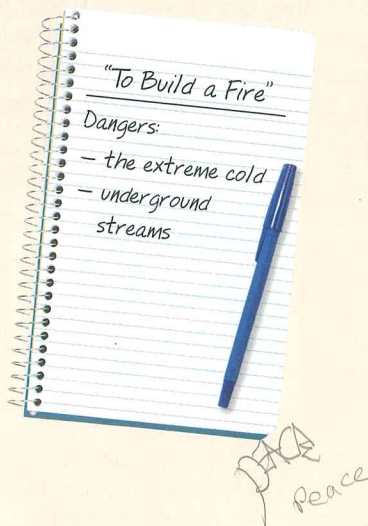 "To Build a Fire"
Dangers:
– the extreme cold
– underground
streams
PEACE
Peace